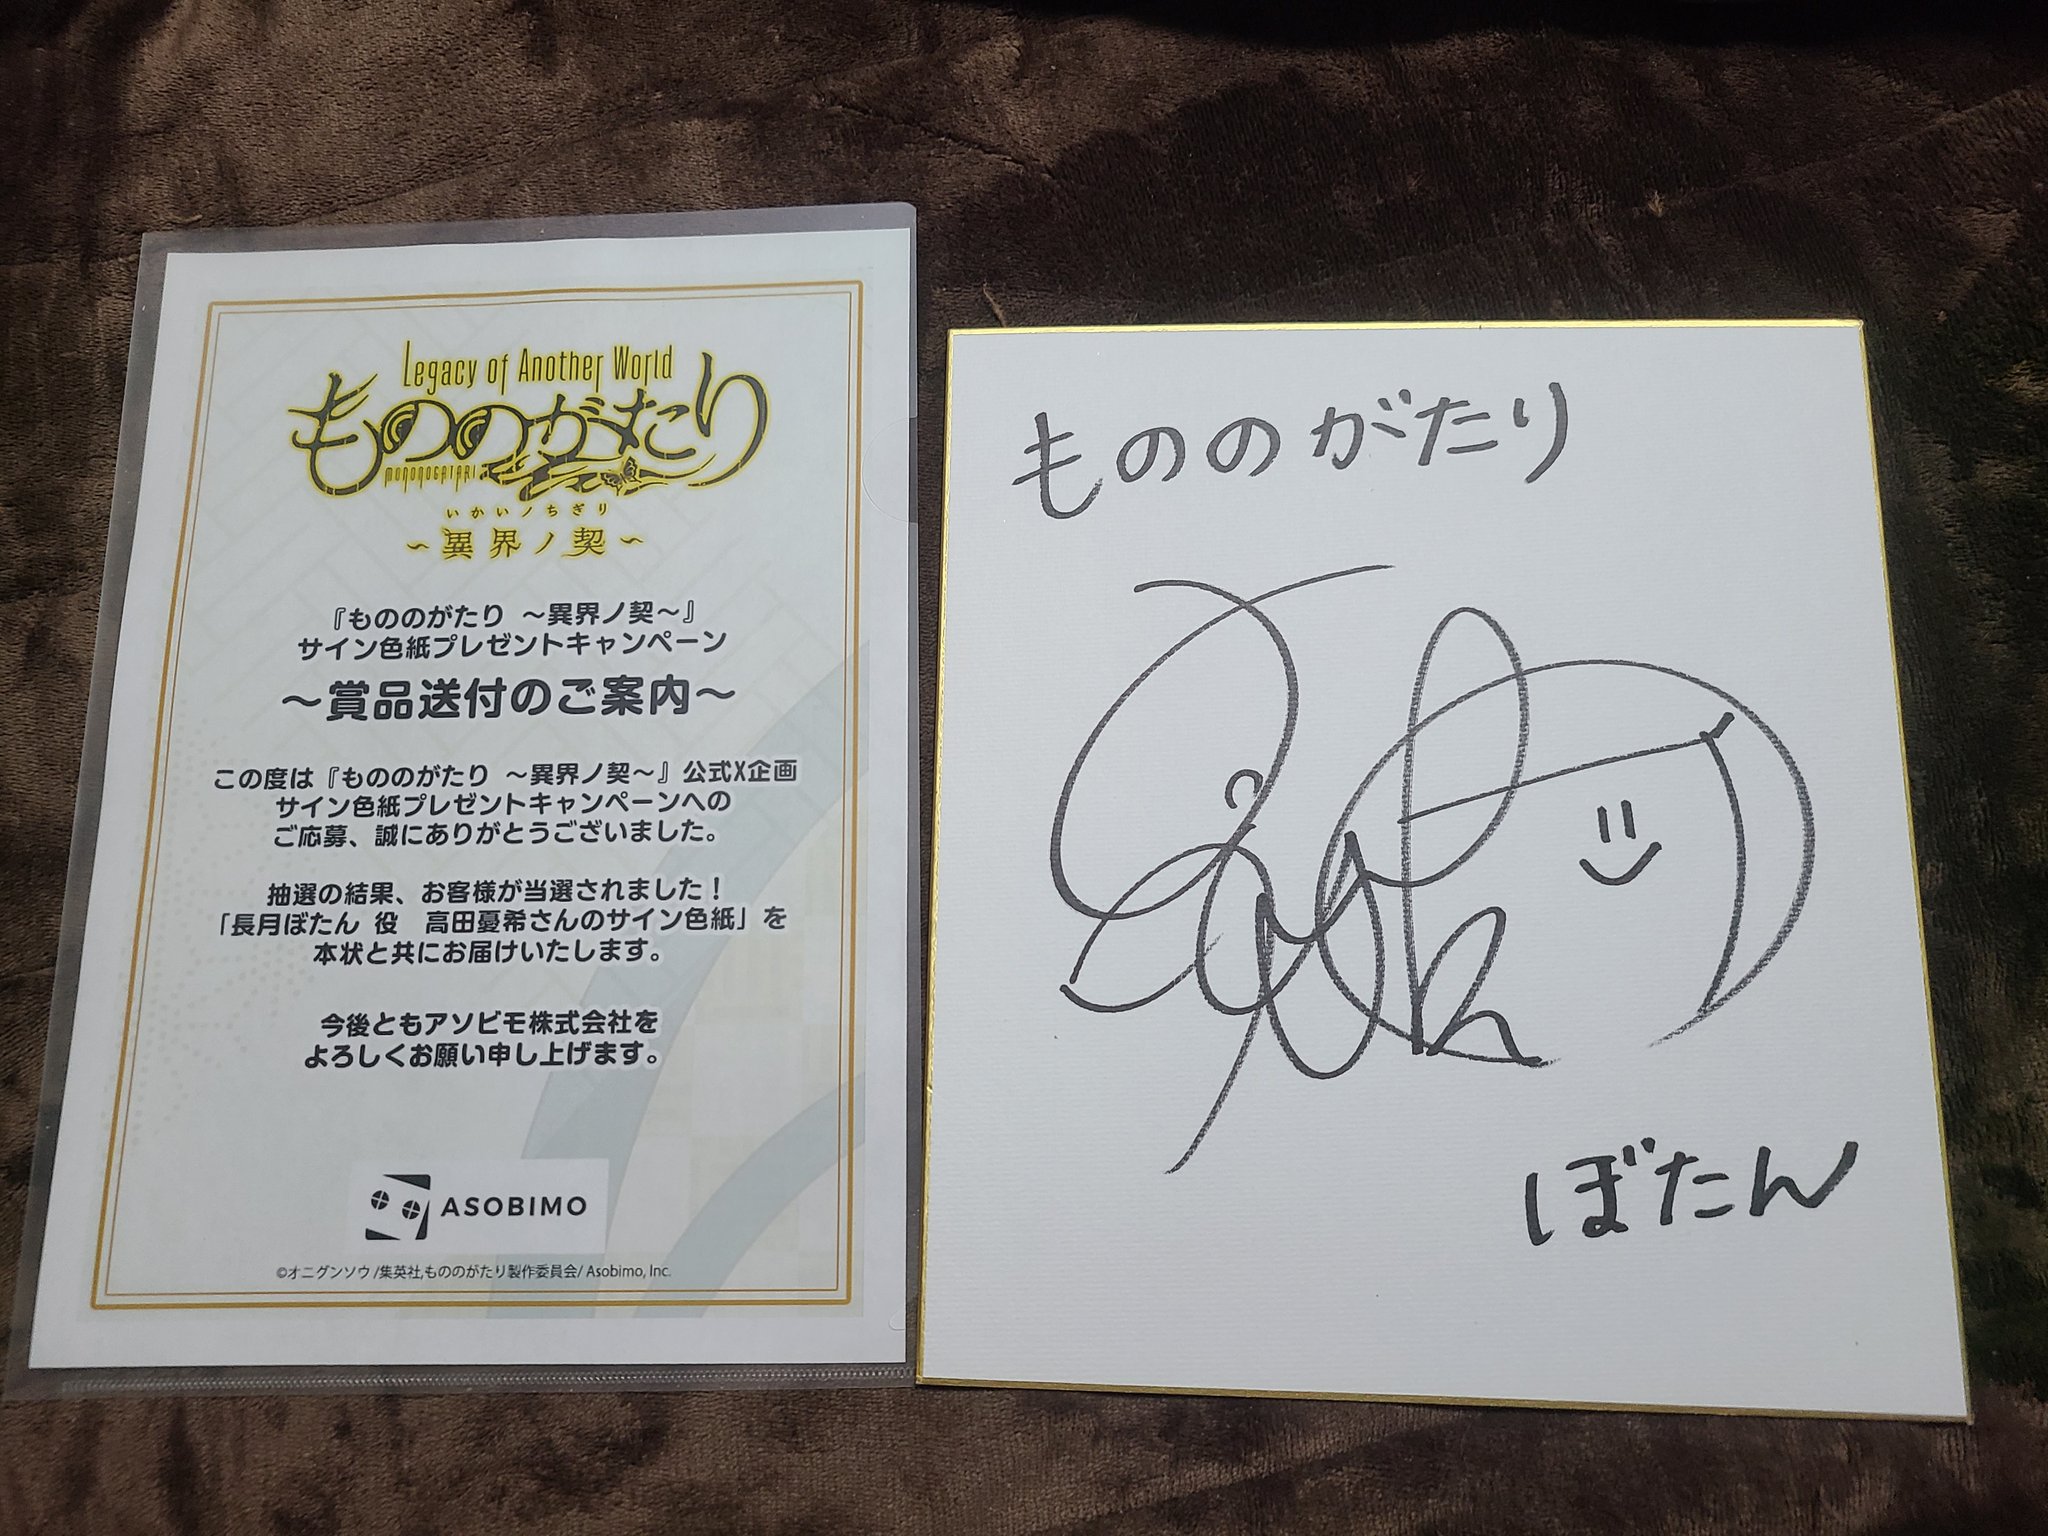 Legacy of Another World
もののがたり
MONONOGATARI
いかいノちぎり
~異界ノ契~
『もののがたり ~異界ノ契~』
サイン色紙プレゼントキャンペーン
~賞品送付のご案内~
この度は『もののがたり ~異界ノ契~』公式X企画
サイン色紙プレゼントキャンペーンへの
ご応募、誠にありがとうございました。
抽選の結果、お客様が当選されました!
「長月ぼたん 役 高田憂希さんのサイン色紙」を
本状と共にお届けいたします。
今後ともアソビモ株式会社を
よろしくお願い申し上げます。
ASOBIMO
©オニグンソウ/集英社,もののがたり製作委員会/ Asobimo, Inc.
もののがたり
ぼたん